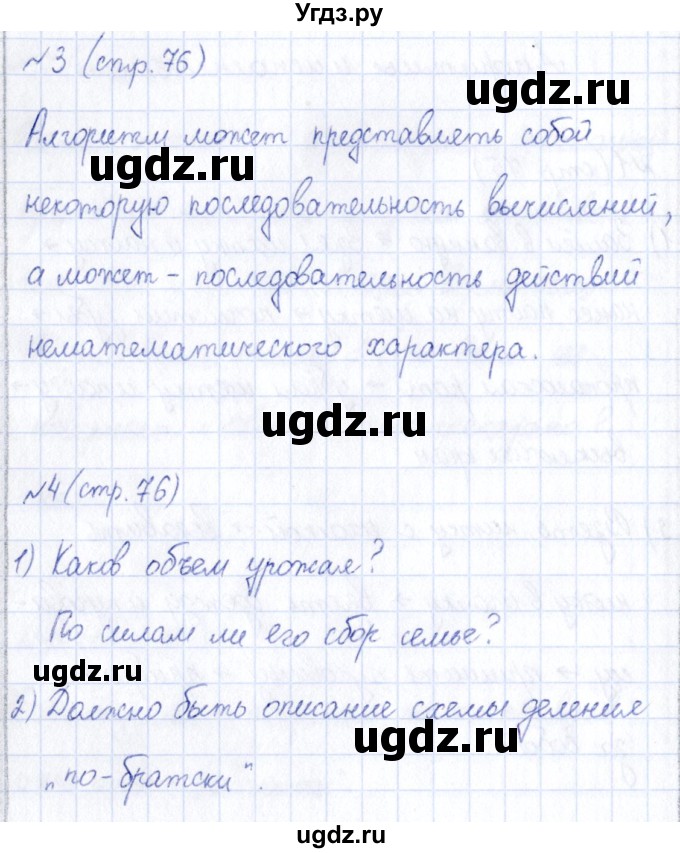 Угдз.ру
№3 (стр. 76)
ugdz.ru
Алгоритм может представлять собой
ugdz.ru
некоторую последовательность вычислений,
а может - последовательность действий
нематематического характера.
ugdz.ru
№4 (стр. 76)
1) Каков объем урожая?
По силам ли его сбор семье?
ugdz.ru
2) Должно быть описание схемы деления
ugdz.ru
„по-братски".
ugdz.ru